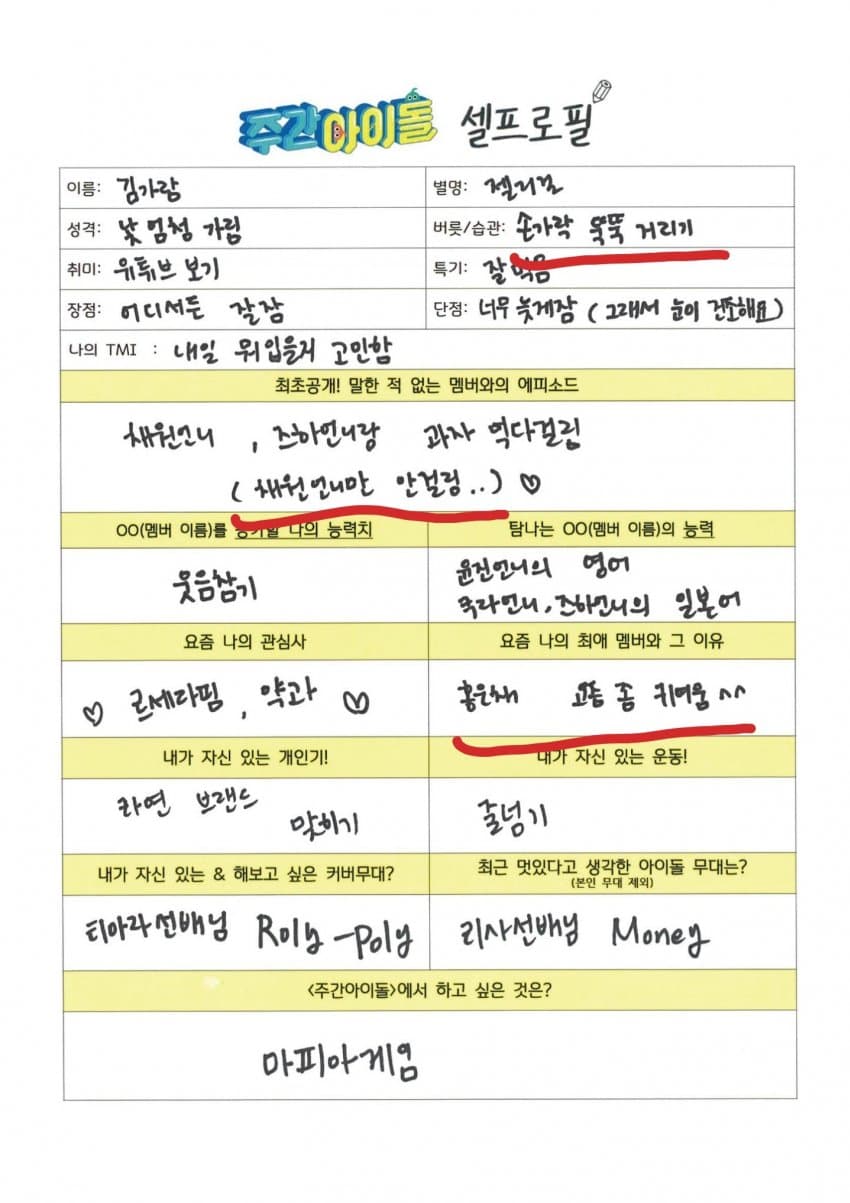 주간아이돌 셀프로필
이름: 김가람 별명: 젤리길
성격: 낯 엄청 가림 버릇/습관: 손가락 뚝뚝 거리기
취미: 유튜브 보기 특기: 잘먹음
장점: 어디서든 잘잠 단점: 너무 늦게잠 (그래서 눈이 건조해요)
나의 TMI : 내일 뭐입을지 고민함
최초공개! 말한 적 없는 멤버와의 에피소드
채원언니 , 즈하언니랑 과자 먹다걸림
(채원언니만 안걸림..) ♡
OO(멤버 이름)를 능가할 나의 능력치 탐나는 OO(멤버 이름)의 능력
웃음참기 윤진언니의 영어
쿠라언니, 즈하언니의 일본어
요즘 나의 관심사 요즘 나의 최애 멤버와 그 이유
♡ 르세라핌, 약과 ♡ 홍은채 요즘 좀 귀여움 ^^
내가 자신 있는 개인기! 내가 자신 있는 운동!
라면 브랜드 맞히기 줄넘기
내가 자신 있는 & 해보고 싶은 커버무대? 최근 멋있다고 생각한 아이돌 무대는?
(본인 무대 제외)
티아라선배님 Roly-poly 리사선배님 Money
<주간아이돌>에서 하고 싶은 것은?
마피아게임